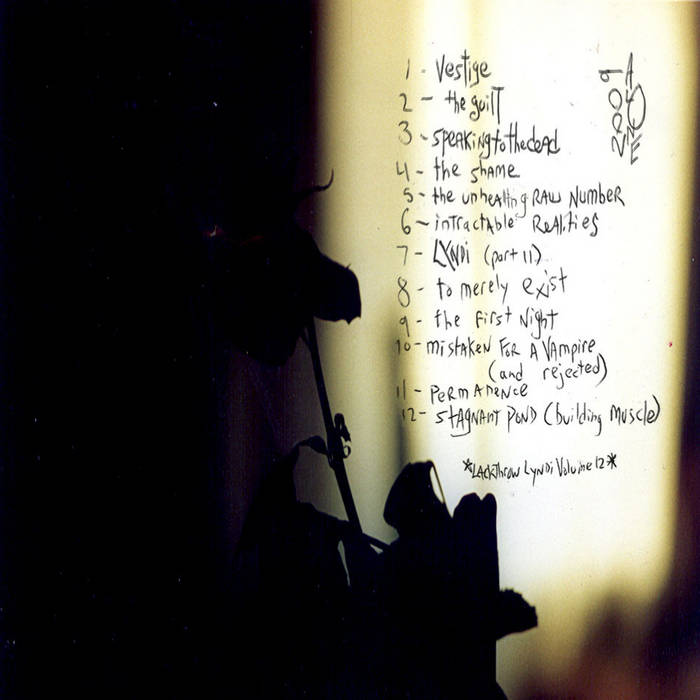 1 - Vestige
2 - the guilt
3 - SpeAKingtothedead
4 - the shame
5 - the unhealing RAW NUMBER
6 - intractable ReALities
7 - LYNDi (part 11)
8 - to merely exist
9 - the first Night
10 - mistAKeN FoR A VAmpire
(and rejected)
11 - peRmAnence
12 - StAgNAnT PoND (building Muscle)
*LAckthrow Lyndi Volume 12*